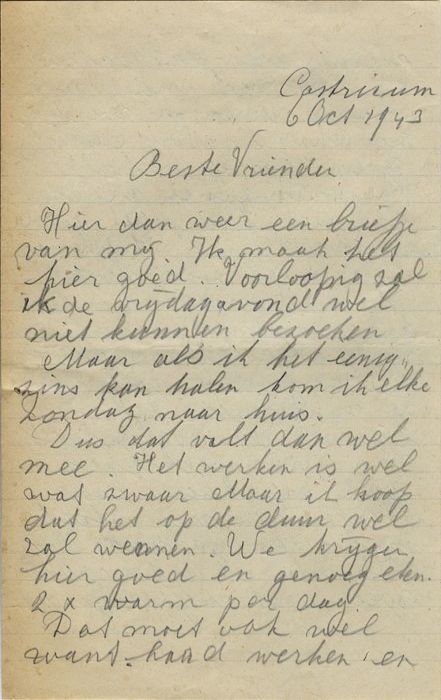 Castricum
6 Oct 1943
Beste Vrienden
Hier dan weer een briefje
van mij Ik maak het
hier goed. Voorloopig zal
ik de vrijdagavond wel
niet kunnen bezoeken
Maar als ik het eenig„
zins kan halen kom ik elke
zondag naar huis.
Dus dat valt dan wel
mee. Het werken is wel
wat zwaar Maar ik hoop
dat het op de duur wel
zal wennen. We krijgen
hier goed en genoeg eten.
2 x warm per dag.
Dat moet ook wel
want. haad werken en